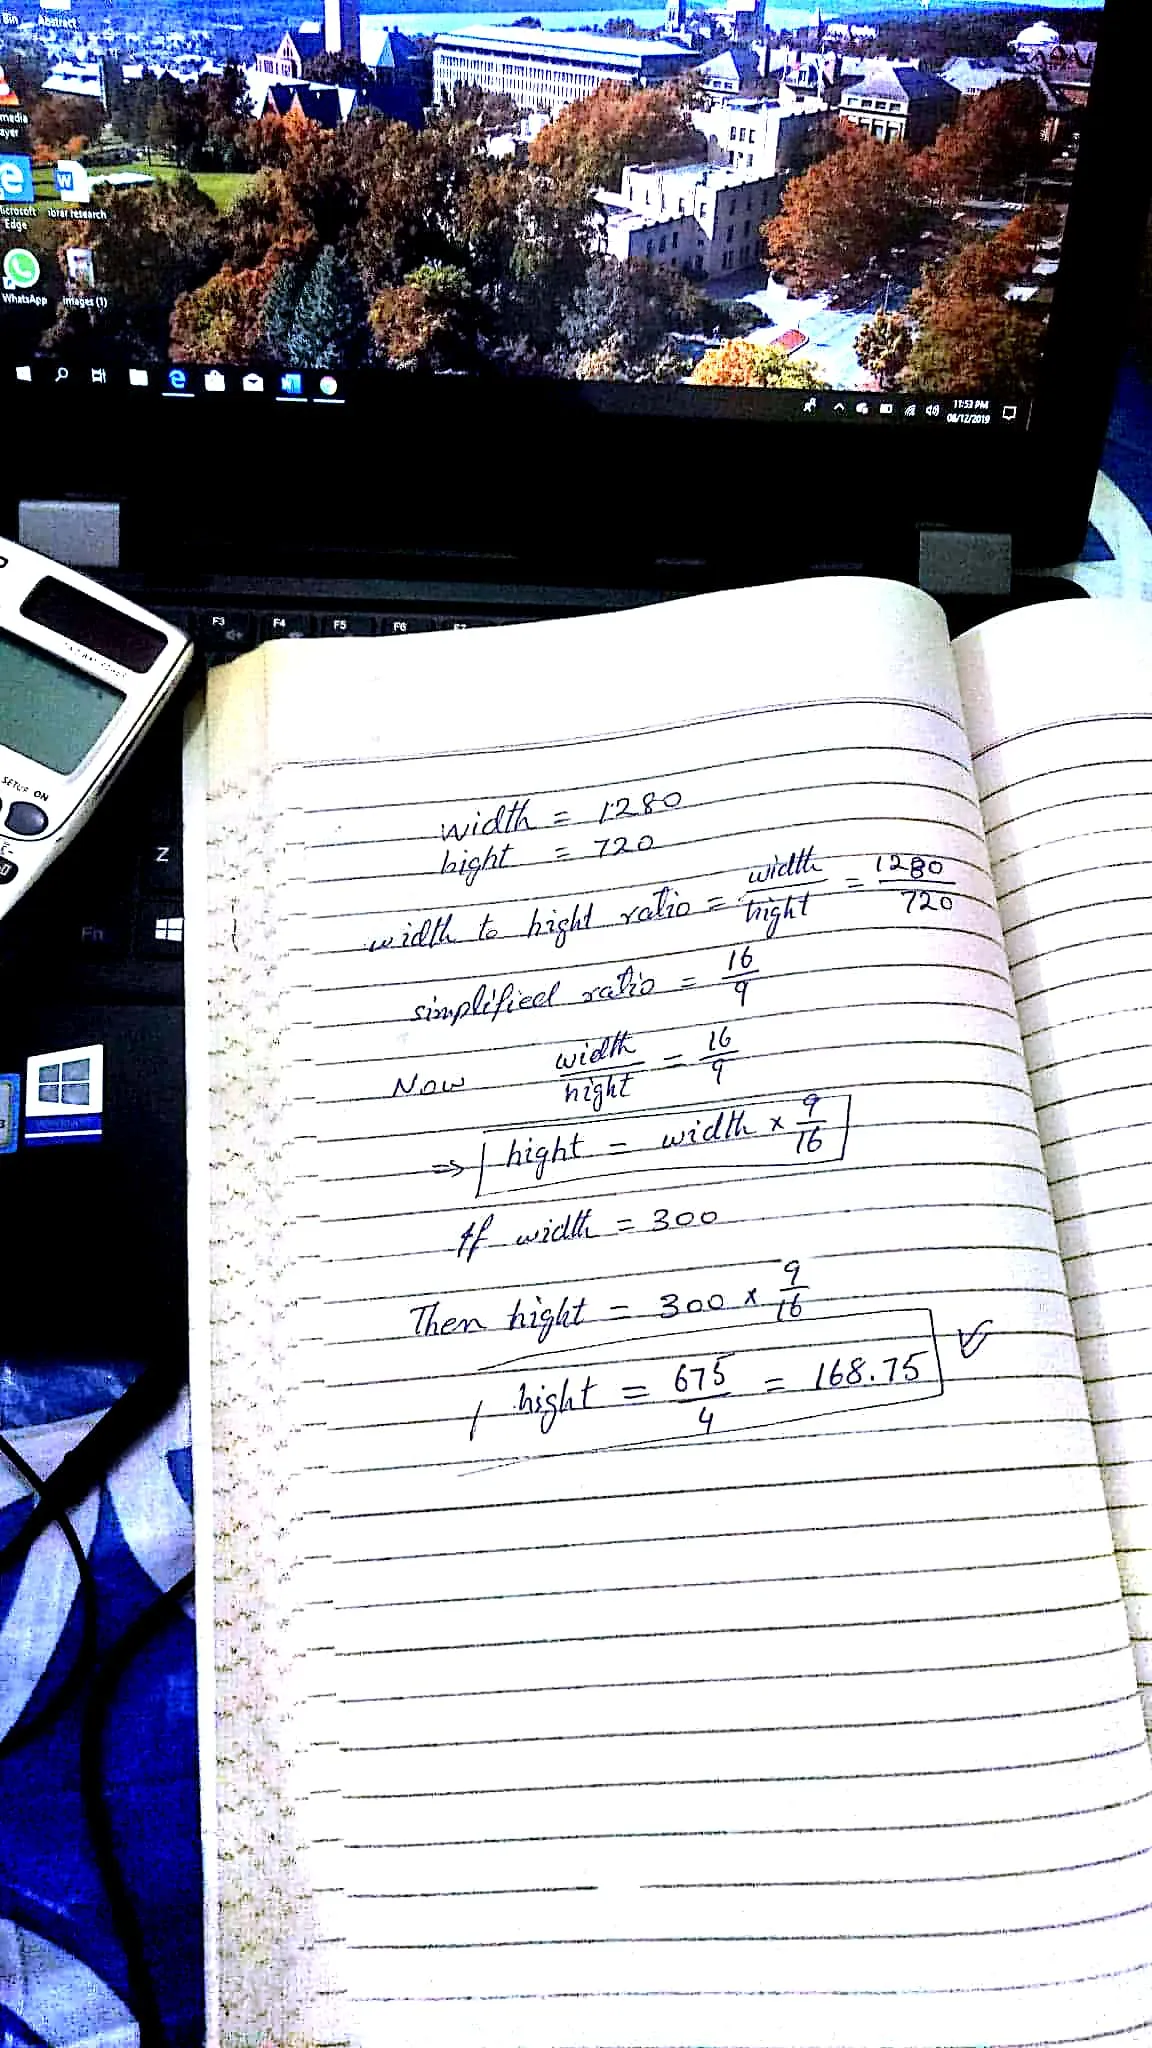 Bin
Abstract
media
ayer
Microsoft
Edge
ibrar research
WhatsApp
images (1)
11:53 PM
06/12/2019
F3 F4 F5 F6 F7
SETUP ON
Z
Fn
width = 1280
hight = 720
width to hight ratio = width/hight = 1280/720
simplified ratio = 16/9
Now width/hight = 16/9
⇒ hight = width × 9/16
If width = 300
Then hight = 300 × 9/16
hight = 675/4 = 168.75